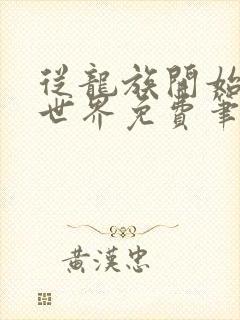 從龍族開始
世界免費筆
黃漢忠